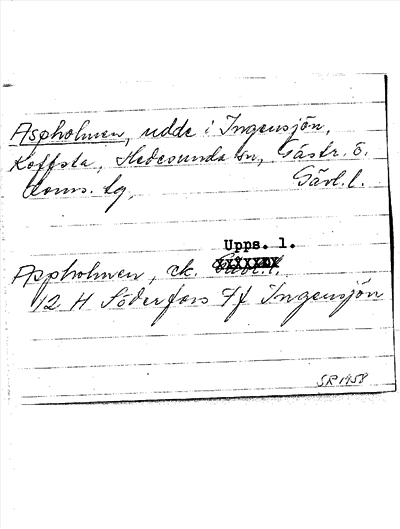 Aspholmen, udde i Ingensjön,
Koffsta, Hedesunda sn, Gästr. ö.
doms. tg. Gävl. l.
Upps. l.
Aspholmen, ek. Gävl. l.
12 H Söderfors 7f Ingensjön
SR 1958